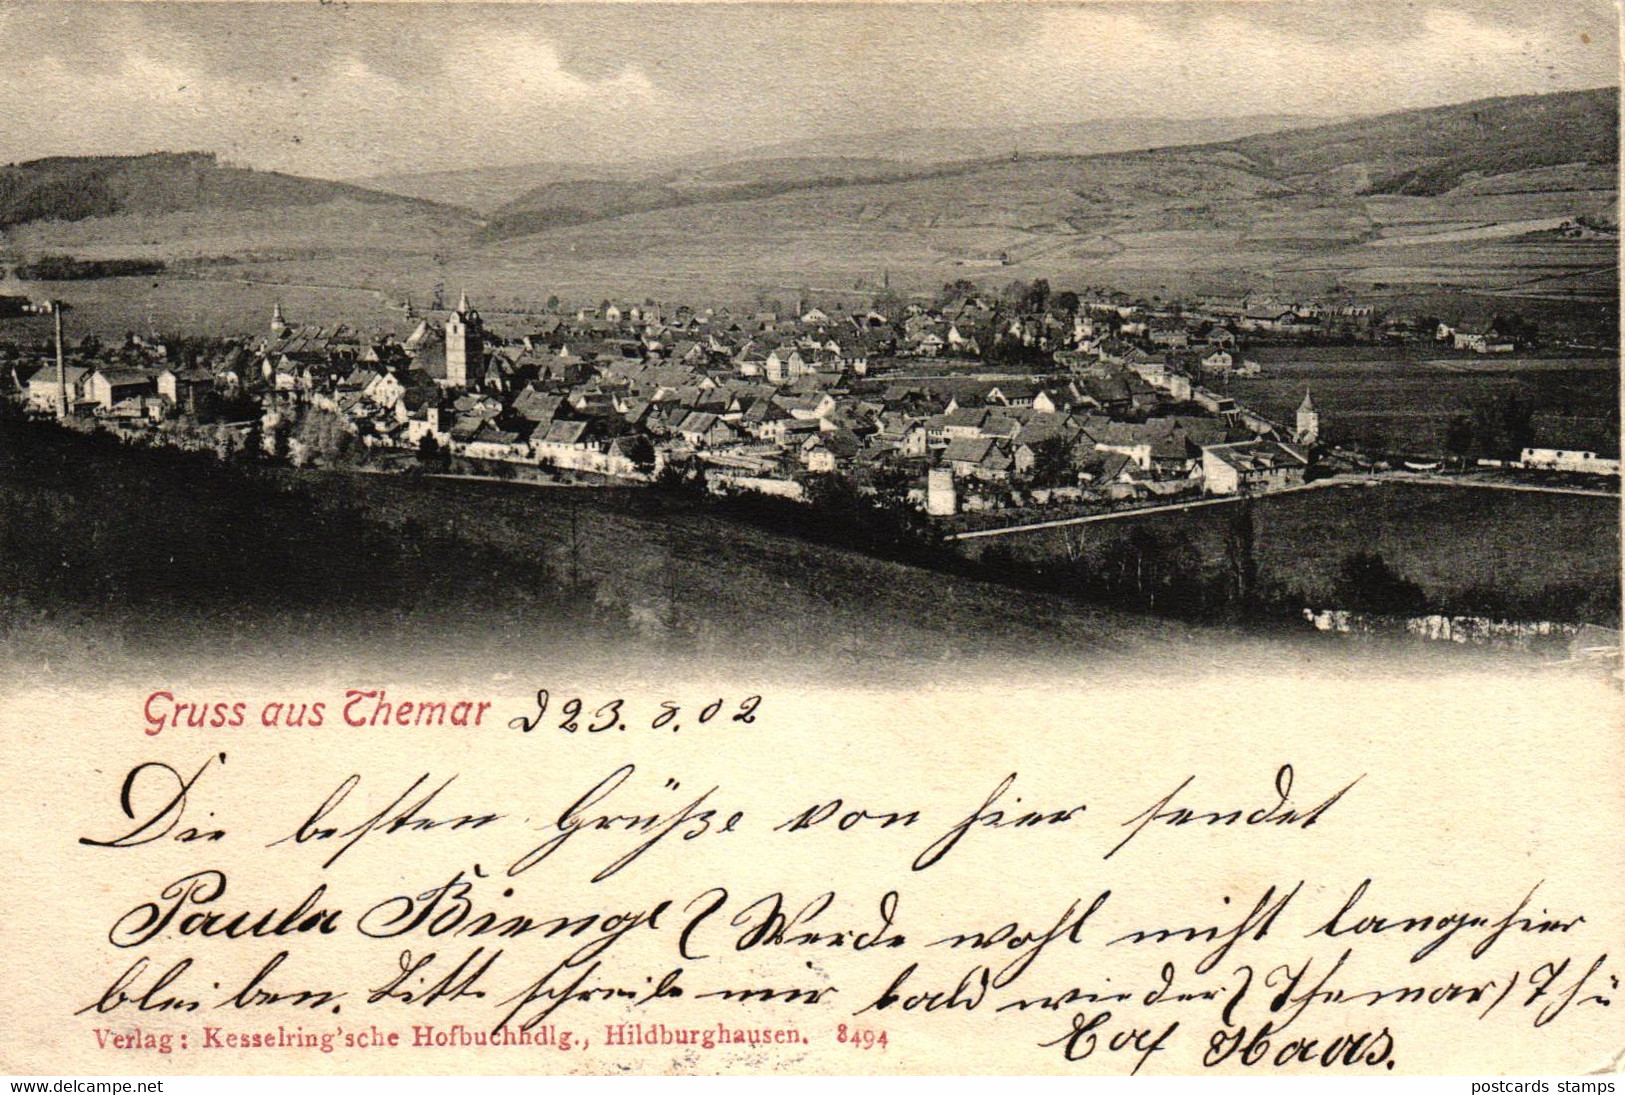 Gruss aus Themar d 23. 8. 02
Die besten Grüße von hier sendet
Paula Biengl (Werde wohl nicht lange hier
bleiben. Bitte schreibe mir bald wieder) (Themar) Thü
Verlag: Kesselring'sche Hofbuchhdlg., Hildburghausen. 8494
Caf Haas.
postcards stamps